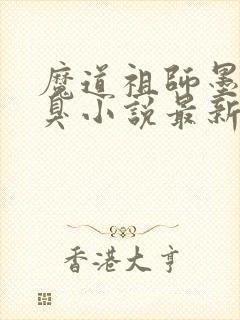 魔道祖師墨
臭小說最新
香港大亨